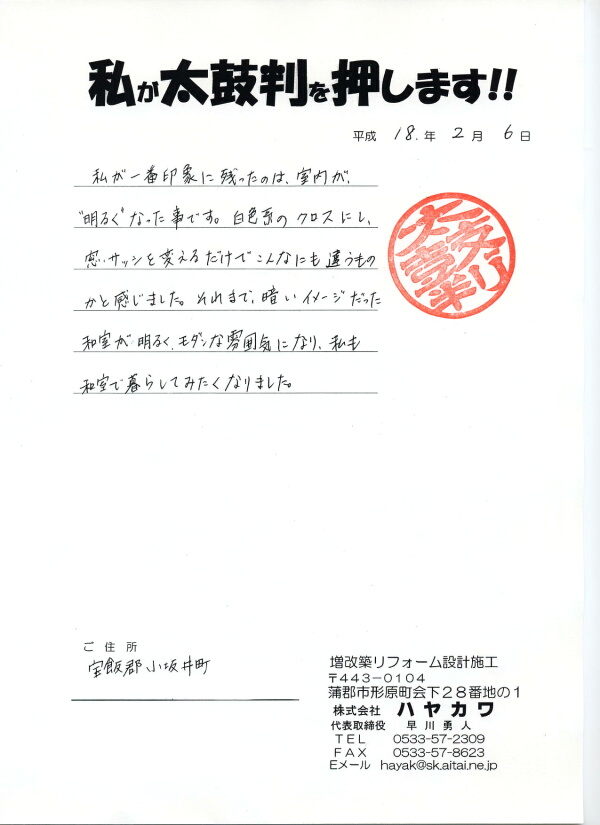 私が太鼓判を押します!!
平成 18.年 2月 6日
私が一番印象に残ったのは、室内が、
"明るく"なった事です。白色系のクロスにし、
窓、サッシを変えるだけでこんなにも違うもの
かと感じました。それまで、暗いイメージだった
和室が明るく、モダンな雰囲気になり、私も
和室で暮らしてみたくなりました。
ご住所
宝飯郡小坂井町
増改築リフォーム設計施工
〒443-0104
蒲郡市形原町会下28番地の1
株式会社 ハヤカワ
代表取締役 早川勇人
TEL 0533-57-2309
FAX 0533-57-8623
Eメール hayak@sk.aitai.ne.jp